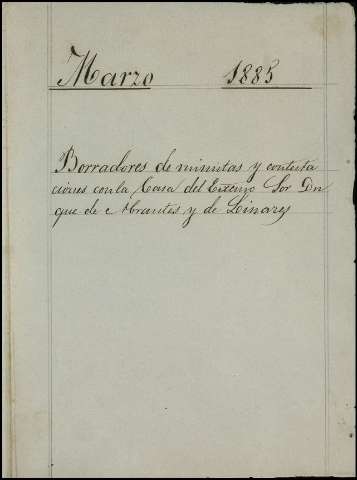 Marzo 1885
Borradores de minutas y contesta
ciones con la Casa del Excmo Sor Du
que de Abrantes y de Linares